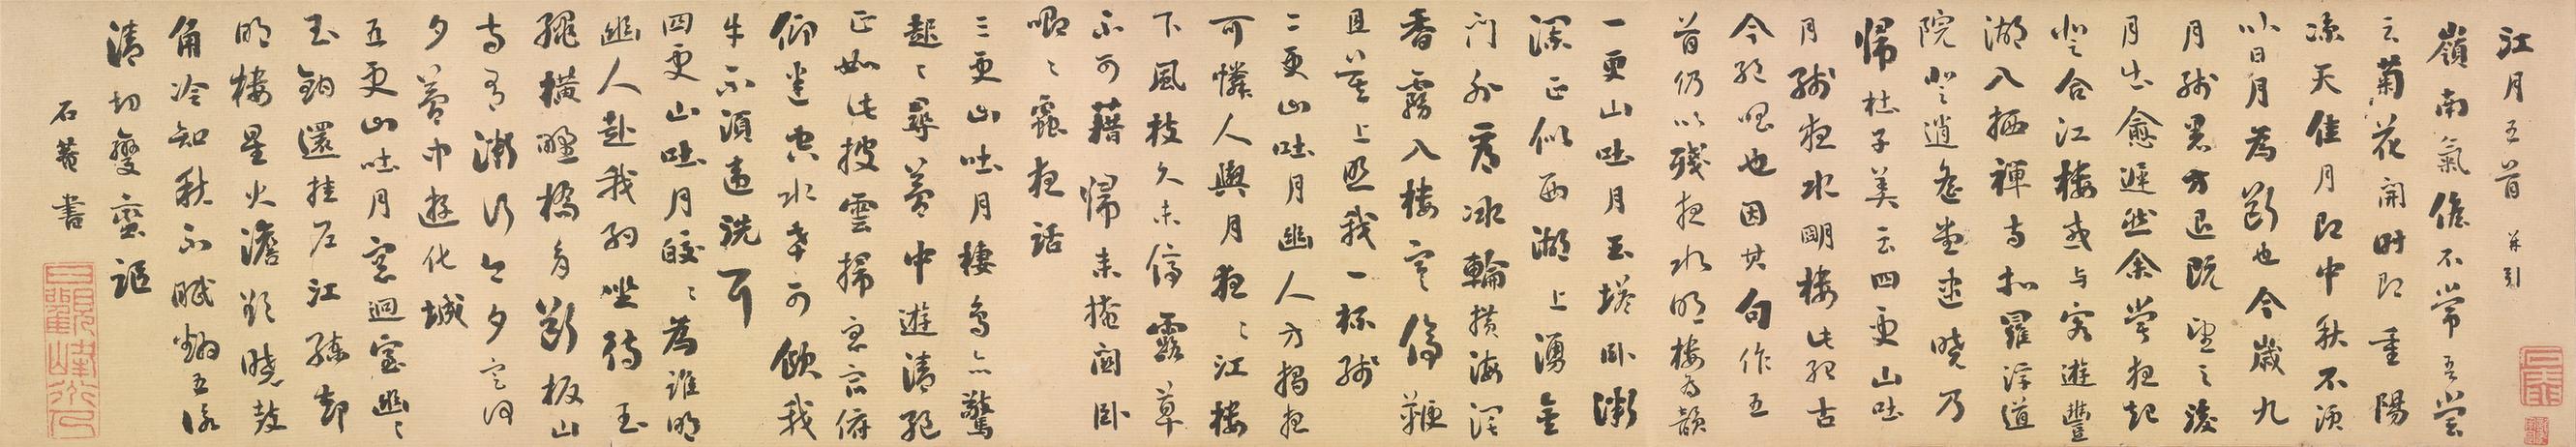 江月五首 并引
嶺南氣候不常吾嘗
云菊花開時即重陽
涼天佳月即中秋不須
以日月為斷也今歲九
月殘暑方退既望之後
月出愈遲然余嘗夜起
登合江樓或与客遊豐
湖入栖禪寺扣羅浮道
院登逍遙堂逮曉乃
歸杜子美云四更山吐
月殘夜水明樓此殆古
今絕唱也因其句作五
首仍以殘夜水明樓為韻
一更山吐月玉塔卧微
瀾正似西湖上湧金
門外看冰輪橫海闊
香霧入樓寒停鞭
且莫上照我一杯殘
二更山吐月幽人方獨夜
可憐人與月夜〻江樓
下風枝久未停露草
不可藉歸來掩關卧
唧〻蟲夜話
三更山吐月棲鳥亦驚
起〻尋夢中遊清絕
正如此披雲掃衆宿俯
仰迷空水幸可飲我
牛不須違洗耳
四更山吐月皎〻為誰明
幽人赴我約坐待玉
繩橫野橋多斷板山
寺有微行今夕定何
夕夢中遊化城
五更山吐月窗迥室幽〻
玉鉤還挂戶江練卻
明樓星火澹欲曉鼓
角冷知秋不眠翻五詠
清切變蠻謳
石菴書